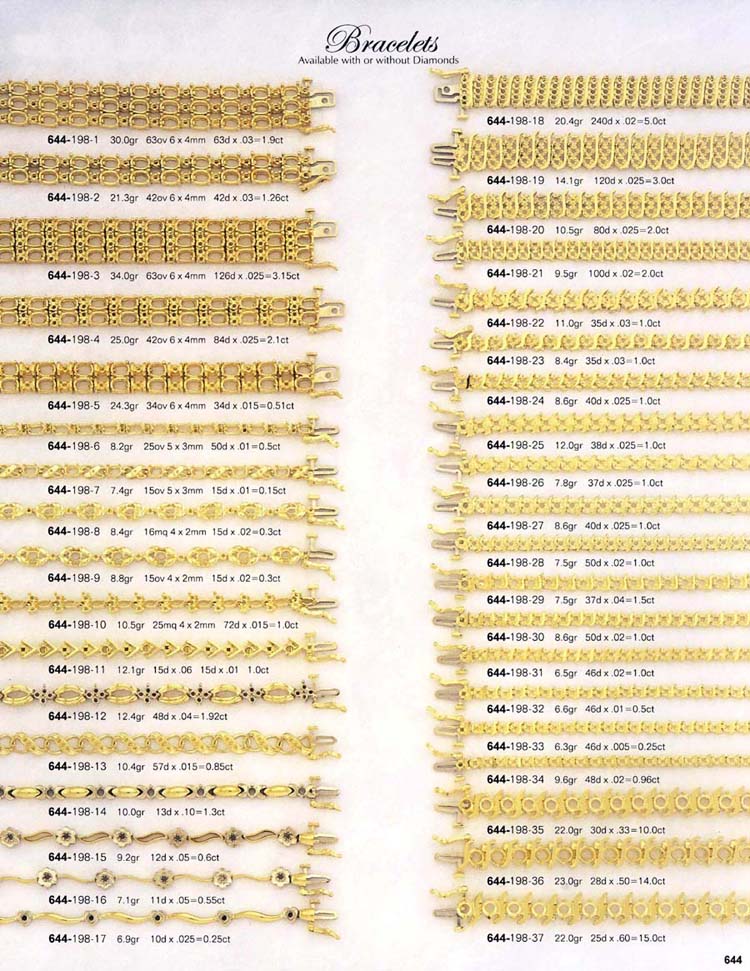 Bracelets
Available with or without Diamonds
644-198-1 30.0gr 63ov 6 x 4mm 63d x .03=1.9ct
644-198-2 21.3gr 42ov 6 x 4mm 42d x .03=1.26ct
644-198-3 34.0gr 63ov 6 x 4mm 126d x .025=3.15ct
644-198-4 25.0gr 42ov 6 x 4mm 84d x .025=2.1ct
644-198-5 24.3gr 34ov 6 x 4mm 34d x .015=0.51ct
644-198-6 8.2gr 25ov 5 x 3mm 50d x .01=0.5ct
644-198-7 7.4gr 15ov 5 x 3mm 15d x .01=0.15ct
644-198-8 8.4gr 16mq 4 x 2mm 15d x .02=0.3ct
644-198-9 8.8gr 15ov 4 x 2mm 15d x .02=0.3ct
644-198-10 10.5gr 25mq 4 x 2mm 72d x .015=1.0ct
644-198-11 12.1gr 15d x .06 15d x .01 1.0ct
644-198-12 12.4gr 48d x .04=1.92ct
644-198-13 10.4gr 57d x .015=0.85ct
644-198-14 10.0gr 13d x .10=1.3ct
644-198-15 9.2gr 12d x .05=0.6ct
644-198-16 7.1gr 11d x .05=0.55ct
644-198-17 6.9gr 10d x .025=0.25ct
644-198-18 20.4gr 240d x .02=5.0ct
644-198-19 14.1gr 120d x .025=3.0ct
644-198-20 10.5gr 80d x .025=2.0ct
644-198-21 9.5gr 100d x .02=2.0ct
644-198-22 11.0gr 35d x .03=1.0ct
644-198-23 8.4gr 35d x .03=1.0ct
644-198-24 8.6gr 40d x .025=1.0ct
644-198-25 12.0gr 38d x .025=1.0ct
644-198-26 7.8gr 37d x .025=1.0ct
644-198-27 8.6gr 40d x .025=1.0ct
644-198-28 7.5gr 50d x .02=1.0ct
644-198-29 7.5gr 37d x .04=1.5ct
644-198-30 8.6gr 50d x .02=1.0ct
644-198-31 6.5gr 46d x .02=1.0ct
644-198-32 6.6gr 46d x .01=0.5ct
644-198-33 6.3gr 46d x .005=0.25ct
644-198-34 9.6gr 48d x .02=0.96ct
644-198-35 22.0gr 30d x .33=10.0ct
644-198-36 23.0gr 28d x .50=14.0ct
644-198-37 22.0gr 25d x .60=15.0ct
644